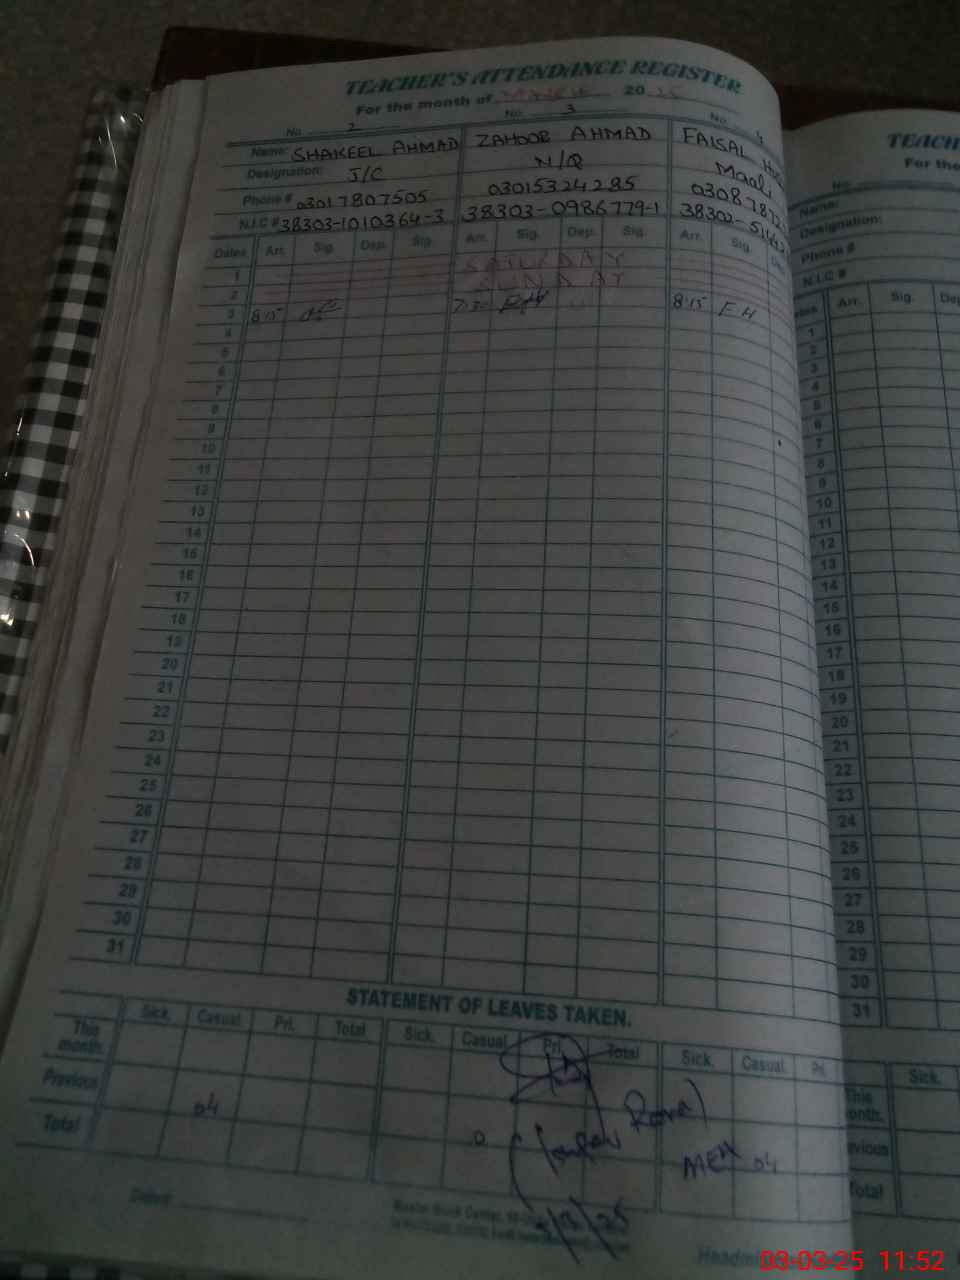 TEACHER'S ATTENDANCE REGISTER
For the month of MARCH 2025
No. 2 No. 3 No. 4
Name: SHAKEEL AHMAD ZAHOOR AHMAD FAISAL
Designation: J/C N/Q Maali
Phone # 03017807505 03015324285 0308787
N.I.C # 38303-1010364-3 38303-0986779-1 38302-
Dates Arr. Sig. Dep. Sig. Arr. Sig. Dep. Sig. Arr. Sig.
1 SATURDAY
2 SUNDAY
3 8:15 7:30 8:15 FH
4
5
6
7
8
9
10
11
12
13
14
15
16
17
18
19
20
21
22
23
24
25
26
27
28
29
30
31
STATEMENT OF LEAVES TAKEN.
Sick. Casual. Pri. Total Sick. Casual. Pri. Total Sick. Casual. Pri.
This month.
Previous 04 0 04
Total
MEA
Dated
TEACH
For the
No
Name:
Designation:
Phone #
N.I.C #
Arr. Sig. De
1
2
3
4
5
6
7
8
9
10
11
12
13
14
15
16
17
18
19
20
21
22
23
24
25
26
27
28
29
30
31
Sick.
This
onth.
evious
Total
03-03-25 11:52